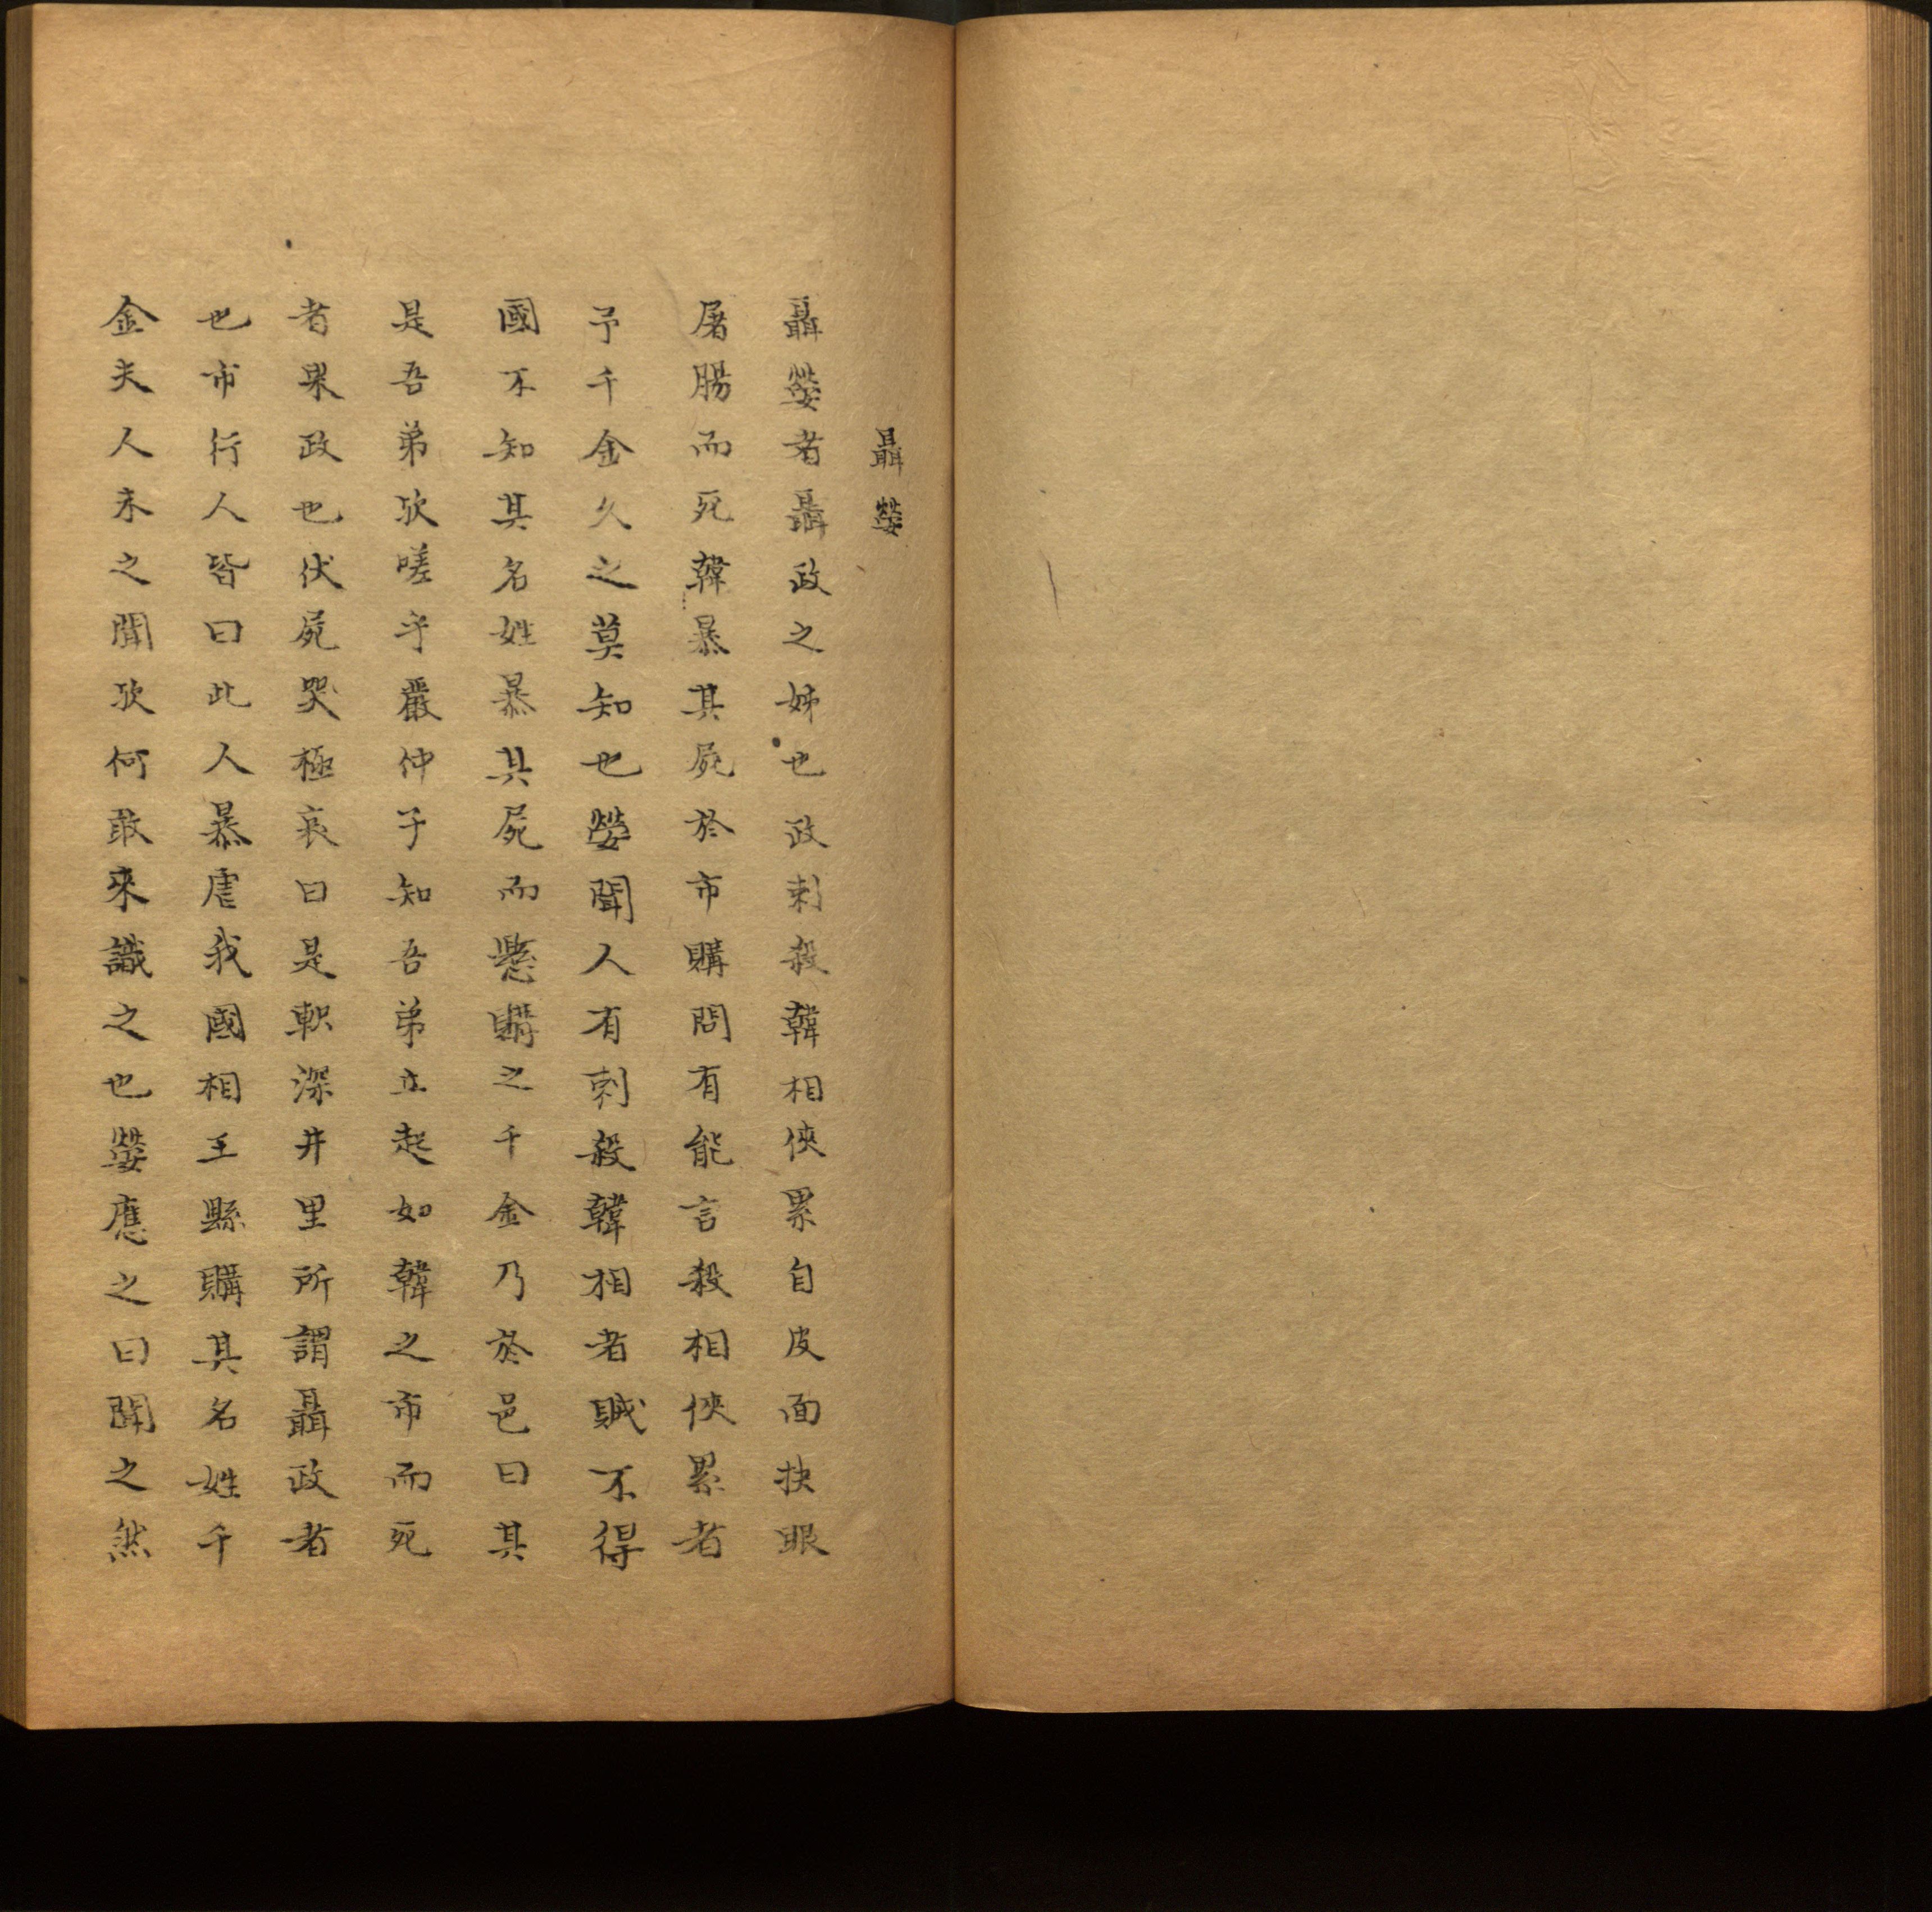 聶嫈
聶嫈者聶政之姊也政刺殺韓相俠累自皮面抉眼
屠腸而死韓暴其屍於市購問有能言殺相俠累者
予千金久之莫知也嫈聞人有刺殺韓相者賊不得
國不知其名姓暴其屍而懸購之千金乃於邑曰其
是吾弟欤嗟乎嚴仲子知吾弟立起如韓之市而死
者果政也伏屍哭極哀曰是軹深井里所謂聶政者
也市行人皆曰此人暴虐我國相王縣購其名姓千
金夫人未之聞欤何敢來識之也嫈應之曰聞之然